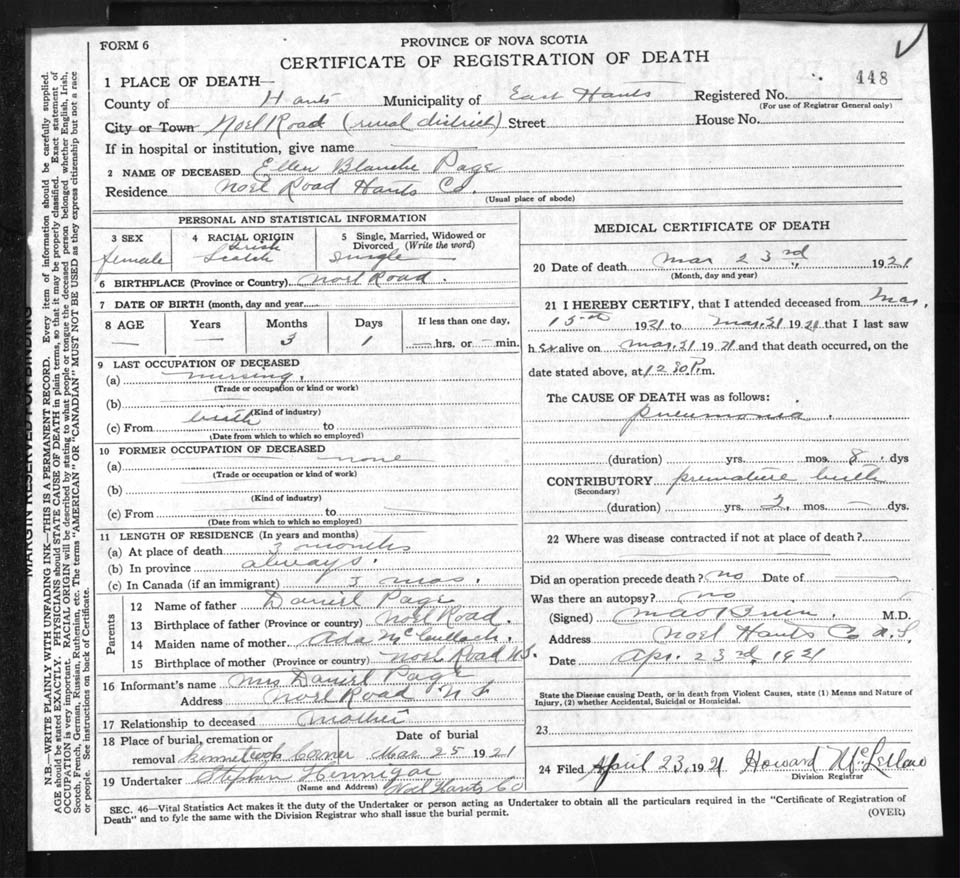 FORM 6
PROVINCE OF NOVA SCOTIA
CERTIFICATE OF REGISTRATION OF DEATH
448
1 PLACE OF DEATH—
County of Hants Municipality of East Hants Registered No.
(For use of Registrar General only)
City or Town Noel Road (rural district) Street House No.
If in hospital or institution, give name
2 NAME OF DECEASED Ellen Blanche Page
Residence Noel Road Hants Co
(Usual place of abode)
PERSONAL AND STATISTICAL INFORMATION
3 SEX
female
4 RACIAL ORIGIN
Irish
Scotch
5 Single, Married, Widowed or Divorced (Write the word)
Single
6 BIRTHPLACE (Province or Country) Noel Road.
7 DATE OF BIRTH (month, day and year
8 AGE Years Months Days If less than one day,
— — 3 1 — hrs. or — min.
9 LAST OCCUPATION OF DECEASED
(a) nursing.
(Trade or occupation or kind or work)
(b)
(Kind of industry)
(c) From birth to
(Date from which to which so employed)
10 FORMER OCCUPATION OF DECEASED
(a) none
(Trade or occupation or kind of work)
(b)
(Kind of industry)
(c) From to
(Date from which to which so employed)
11 LENGTH OF RESIDENCE (In years and months)
(a) At place of death 3 months
(b) In province always.
(c) In Canada (if an immigrant) 3 mos.
Parents
12 Name of father Daniel Page
13 Birthplace of father (Province or country) Noel Road.
14 Maiden name of mother Ada McCullach.
15 Birthplace of mother (Province or country) Noel Road N.S.
16 Informant's name Mrs Daniel Page
Address Noel Road N S
17 Relationship to deceased mother
18 Place of burial, cremation or removal Kennetcook Corner
Date of burial
Mar 25 1921
19 Undertaker Stephen Hennigar
(Name and Address) Noel Hants Co
MEDICAL CERTIFICATE OF DEATH
20 Date of death Mar 23rd 1921
(Month, day and year)
21 I HEREBY CERTIFY, that I attended deceased from Mar.
15th 1921 to Mar. 21 1921 that I last saw
her alive on Mar. 21 1921 and that death occurred, on the
date stated above, at 12 30 P.m.
The CAUSE OF DEATH was as follows:
pneumonia.
(duration) yrs. mos. 8 dys
CONTRIBUTORY premature birth
(Secondary)
(duration) yrs. 3 mos. — dys.
22 Where was disease contracted if not at place of death?
Did an operation precede death? no Date of
Was there an autopsy? no
(Signed) M.D.
Address Noel Hants Co N.S
Date Apr. 23rd, 1921
State the Disease causing Death, or in death from Violent Causes, state (1) Means and Nature of
Injury, (2) whether Accidental, Suicidal or Homicidal.
23
24 Filed April 23, 1921 Howard McLellan
Division Registrar
SEC. 46—Vital Statistics Act makes it the duty of the Undertaker or person acting as Undertaker to obtain all the particulars required in the "Certificate of Registration of
Death" and to fyle the same with the Division Registrar who shall issue the burial permit.
(OVER)
MARGIN RESERVED FOR BINDING
N.B.—WRITE PLAINLY WITH UNFADING INK—THIS IS A PERMANENT RECORD. Every item of information should be carefully supplied.
AGE should be stated EXACTLY. PHYSICIANS should STATE CAUSE OF DEATH in plain terms, so that it may be properly classified. Exact statement of
OCCUPATION is very important. RACIAL ORIGIN will be described by stating to what people or tongue the deceased person belonged whether English, Irish,
Scotch, French, German, Russian, Ruthenian, etc. The terms "AMERICAN" OR "CANADIAN" MUST NOT BE USED as they express citizenship but not a race
or people. See instructions on back of Certificate.